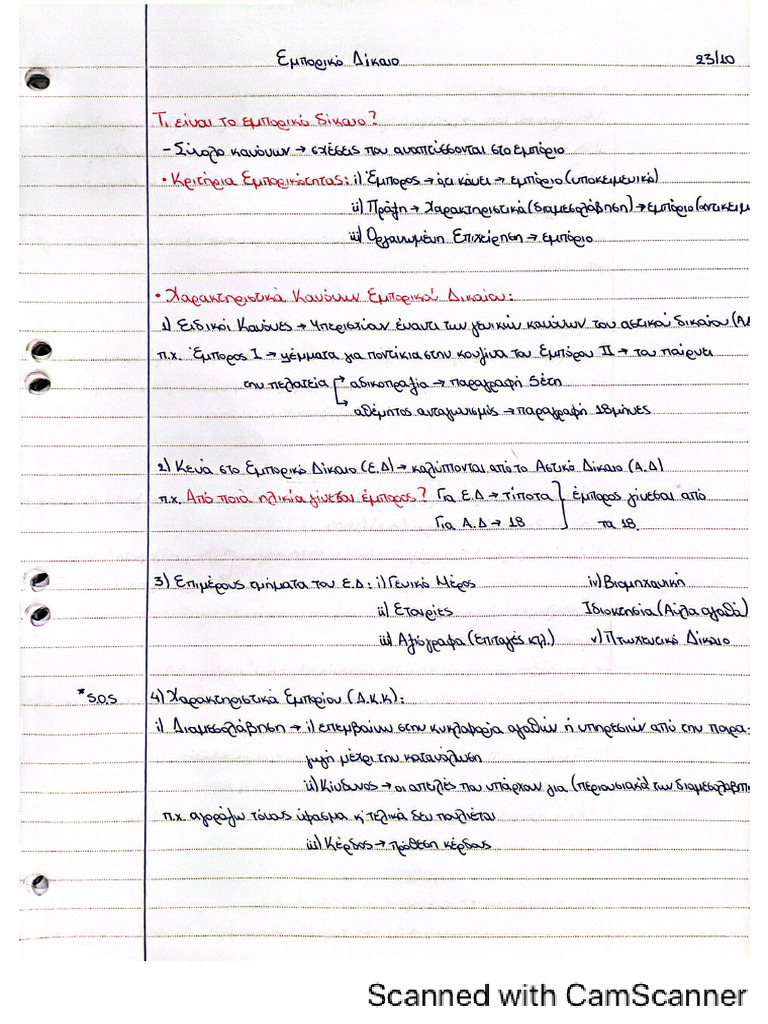 Εμπορικό Δίκαιο 23/10
Τι είναι το εμπορικό δίκαιο?
- Σύνολο κανόνων → σχέσεις που αναπτύσσονται στο εμπόριο
• Κριτήρια Εμπορικότητας: i) Έμπορος → ό,τι κάνει → εμπόριο (υποκειμενικό)
ii) Πράξη → Χαρακτηριστικά (διαμεσολάβηση) → εμπόριο (αντικειμ
iii) Οργανωμένη Επιχείρηση → εμπόριο
• Χαρακτηριστικά Κανόνων Εμπορικού Δικαίου:
1) Ειδικοί Κανόνες → Υπερισχύουν έναντι των γενικών κανόνων του αστικού δικαίου (Α.Δ
π.χ. Έμπορος I → ψέμματα για ποντίκια στην κουζίνα του Εμπόρου II → του παίρνει
την πελατεία → αδικοπραξία → παραγραφή 5έτη
→ αθέμιτος ανταγωνισμός → παραγραφή 18μήνες
2) Κενά στο Εμπορικό Δίκαιο (Ε.Δ) → καλύπτονται από το Αστικό Δίκαιο (Α.Δ)
π.χ. Από ποιά ηλικία γίνεσαι έμπορος? Για Ε.Δ → τίποτα } έμπορος γίνεσαι από
Για Α.Δ → 18 τα 18.
3) Επιμέρους τμήματα του Ε.Δ: i) Γενικό Μέρος iv) Βιομηχανική
ii) Εταιρίες Ιδιοκτησία (Αϋλα αγαθά)
iii) Αξιόγραφα (Επιταγές κτλ.) v) Πτωχευτικό Δίκαιο
*S.O.S 4) Χαρακτηριστικά Εμπορίου (Δ.Κ.Κ):
i) Διαμεσολάβηση → i) επεμβαίνω στην κυκλοφορία αγαθών ή υπηρεσιών από την παρα-
γωγή μέχρι την κατανάλωση
ii) Κίνδυνος → οι απειλές που υπάρχουν για (περιουσιακά) των διαμεσολαβητ
π.χ. αγοράζω τόνους ύφασμα κ' τελικά δεν πουλιέται
iii) Κέρδος → πρόθεση κέρδους
Scanned with CamScanner